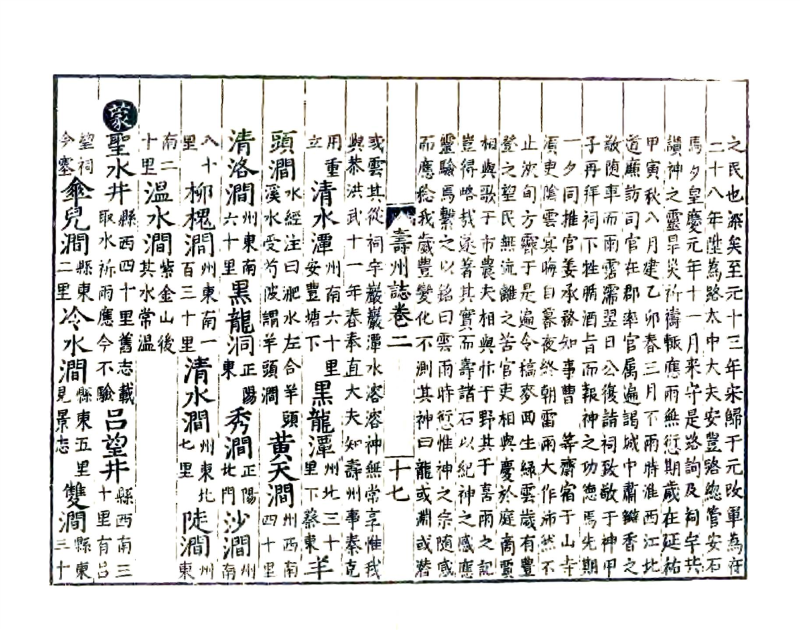 之民也深矣至元十三年宋歸于元改軍為府
二十八年陞為路太中大夫安豐路總管安石
馬夕皇慶元年十一月來守是路詢及祠宇共
讚神之靈旱災祈禱輒應雨無愆期歲在延祐
甲寅秋八月建乙卯春三月不雨時淮西江北
道廉訪司官在郡率官属遍謁城中肅辦香之
敬随車而雨霑濡翌日公復請祠致敬于神甲
子再拜祠下牲腯酒旨而報神之功德焉先期
一夕同推官姜承務知事曹 等齋宿于山寺
須吏陰雲其晦自暮夜終朝雷雨大作沛然不
止浹旬方霽于是遍令禱麥四生緑雲歲有豊
登之望民無流離之苦官吏相與慶於庭商賈
相與歌于市農夫相與忭于野其于喜雨之記
豈得略哉遂著其實而壽諸石以紀神之感應
靈驗焉繫之以銘曰雲雨時愆惟神之宗随感
而應稔我歲豊變化不測其神曰龍或淵或潜
壽州誌卷二 十七
或雲其從祠宇巖巖潭水溶溶神無常享惟我
與恭洪武十一年春奉直大夫知壽州事秦克
用重立 清水潭 州南六十里安豐塘下 黑龍潭 州北三十里下蔡東 羊
頭澗 水經注曰淝水左合羊頭溪水受芍陂謂羊頭澗 黄天澗 州西南四十里
清洛澗 州東南六十里 黑龍洞 正陽東 秀澗 正陽北門 沙澗 州南
八十里 柳槐澗 州東南一百三十里 清水澗 州東北七里 陡澗 州東
南二十里 温水澗 紫金山後其水常温
蒙 聖水井 縣西四十里舊志載取水祈雨應今不驗 吕望井 縣西南三十里有吕
望祠今塞 傘兒澗 縣東二里 冷水澗 縣東五里見景志 雙澗 縣東三十